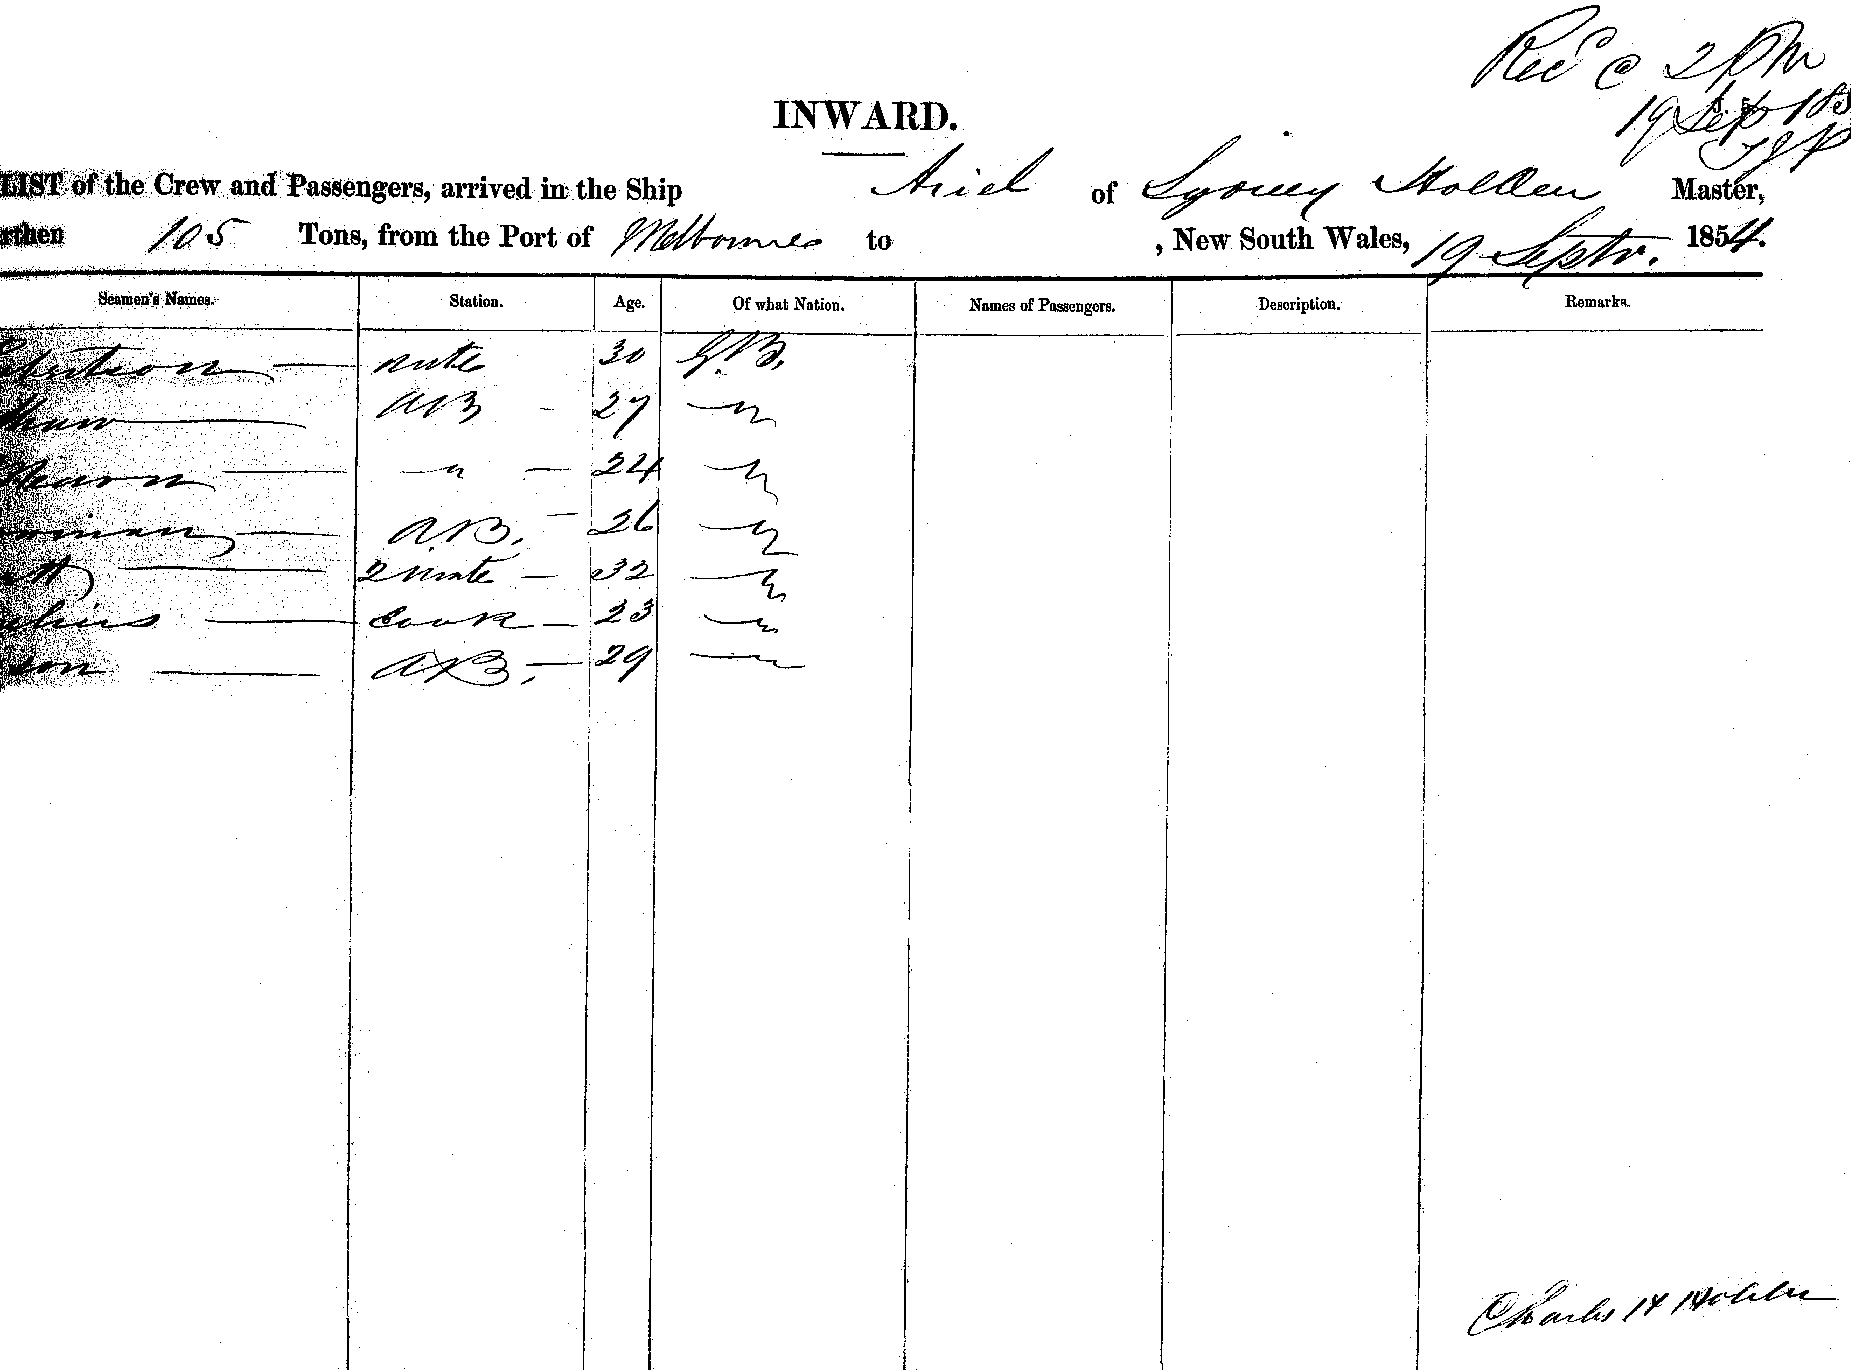 Recd @ 2 PM
19 Sep 185
INWARD.
LIST of the Crew and Passengers, arrived in the Ship Ariel of Sydney Holden Master,
rthen 105 Tons, from the Port of Melbourne to , New South Wales, 19 Septr. 1854.
Seamen's Names. Station. Age. Of what Nation. Names of Passengers. Description. Remarks.
bertson — mate 30 G.B.
AB — 27 — "
— " — 24 — "
A.B. — 26 — "
2 mate — 32 — "
Cook — 23 — "
son — AB. — 29 — "
Charles H Holden